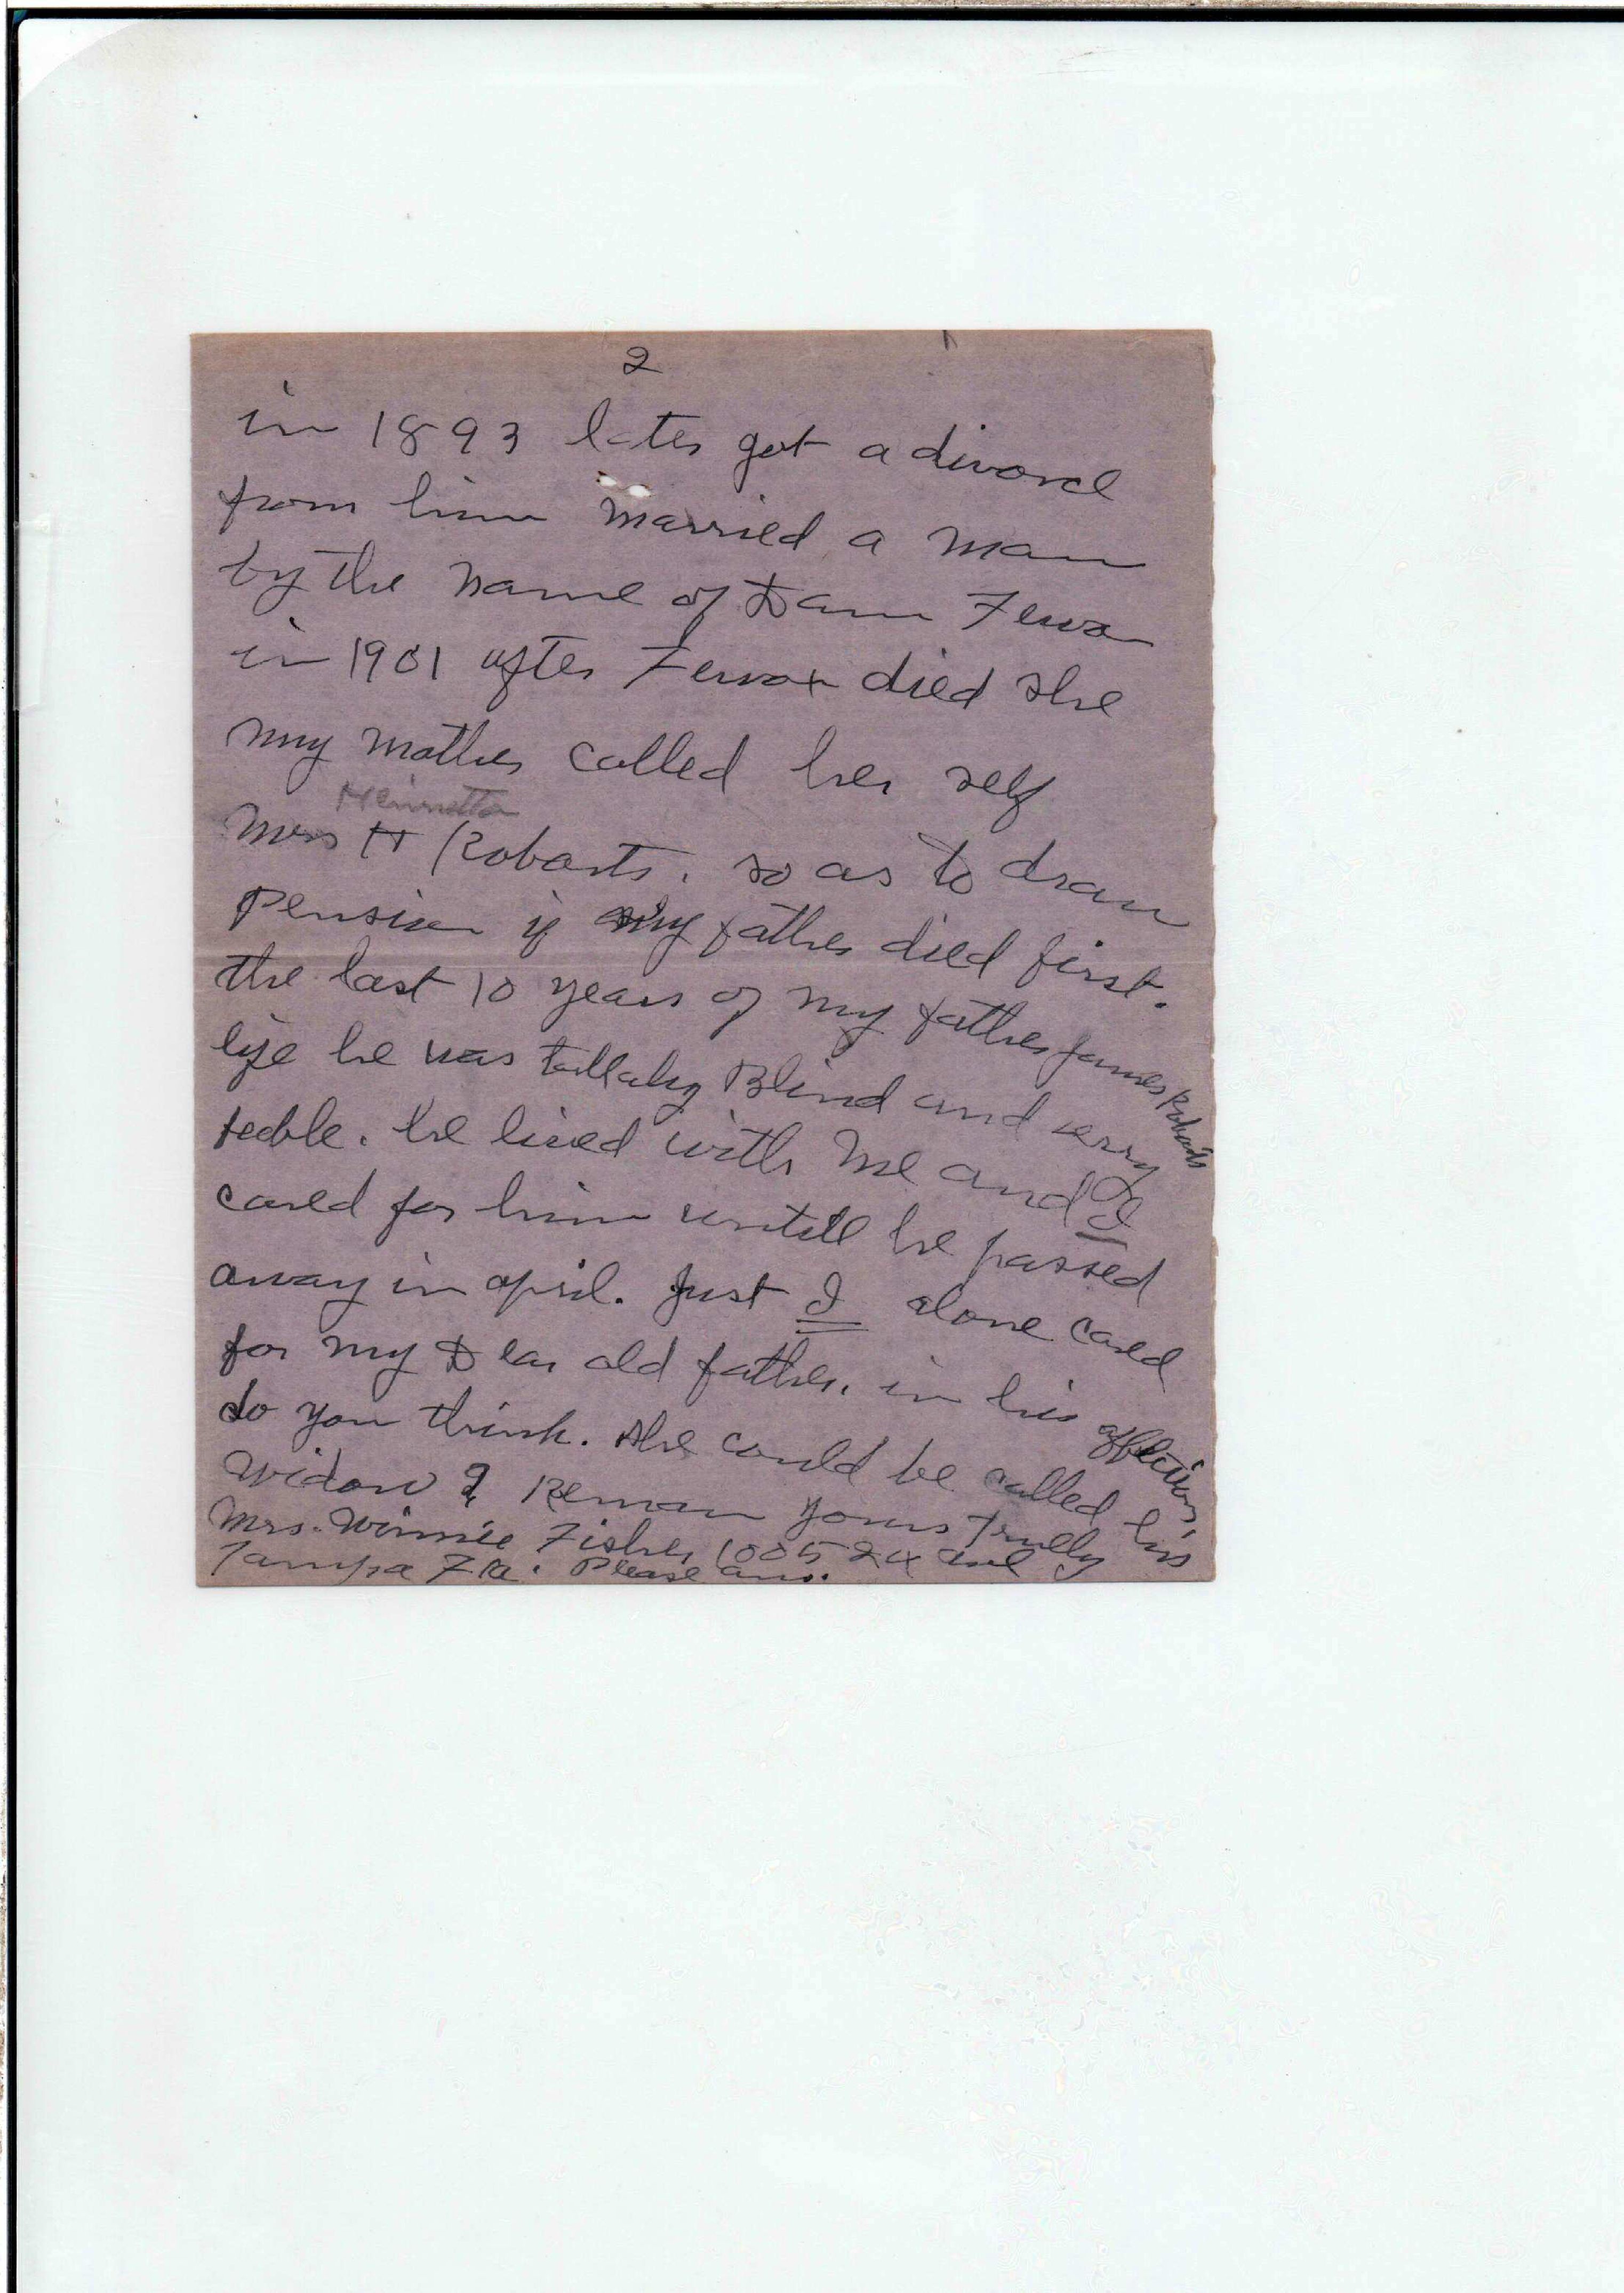 2
in 1893 later got a divorce
from him married a man
by the name of Dam
in 1901 after died she
my mother called her self
Henrietta
Mrs H Robarts. so as to draw
Pension if my father died first.
the last 10 years of my father James Robarts
life he was Blind and very
feeble. he lived with me and I
cared for him untill he passed
away in april. Just I alone cared
for my Dear old father. in his affliction,
do you think. she could be called his
widow? Reman yours Trully
Mrs. Winnie Fisher 1005 24 ave
Tampa Fla. Please ans.